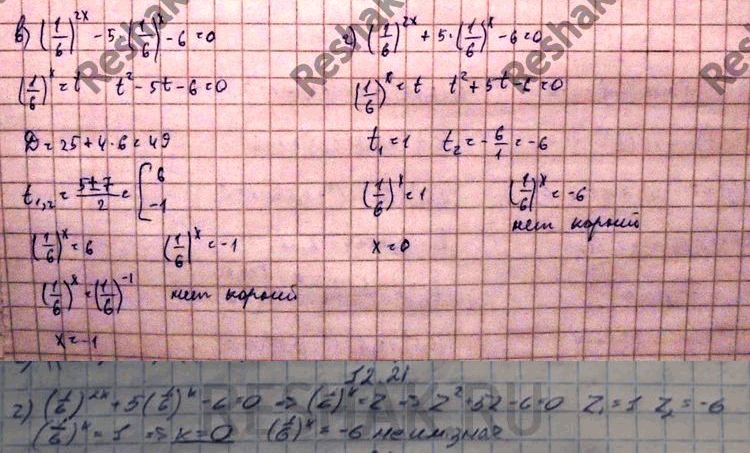 в) (1/6)^2x - 5·(1/6)^x - 6 = 0
(1/6)^x = t   t² - 5t - 6 = 0
D = 25 + 4·6 = 49
t₁,₂ = (5±7)/2 = [6
-1
(1/6)^x = 6   (1/6)^x = -1
(1/6)^x = (1/6)^-1   нет корней
x = -1
г) (1/6)^2x + 5·(1/6)^x - 6 = 0
(1/6)^x = t   t² + 5t - 6 = 0
t₁ = 1   t₂ = -6/1 = -6
(1/6)^x = 1   (1/6)^x = -6
нет корней
x = 0
12.21
г) (1/6)^2x + 5(1/6)^x - 6 = 0 => (1/6)^x = z => z² + 5z - 6 = 0   z₁ = 1   z₂ = -6
(1/6)^x = 1 => x = 0   (1/6)^x = -6 не им. знач.
Reshak
Reshak
Reshak
RESHAK.RU